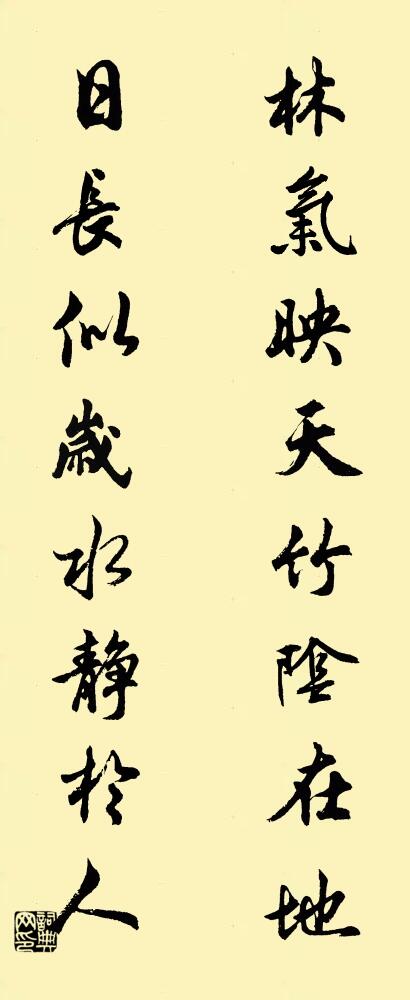 林氣映天竹陰在地
日長似歲水靜於人
詞典网印